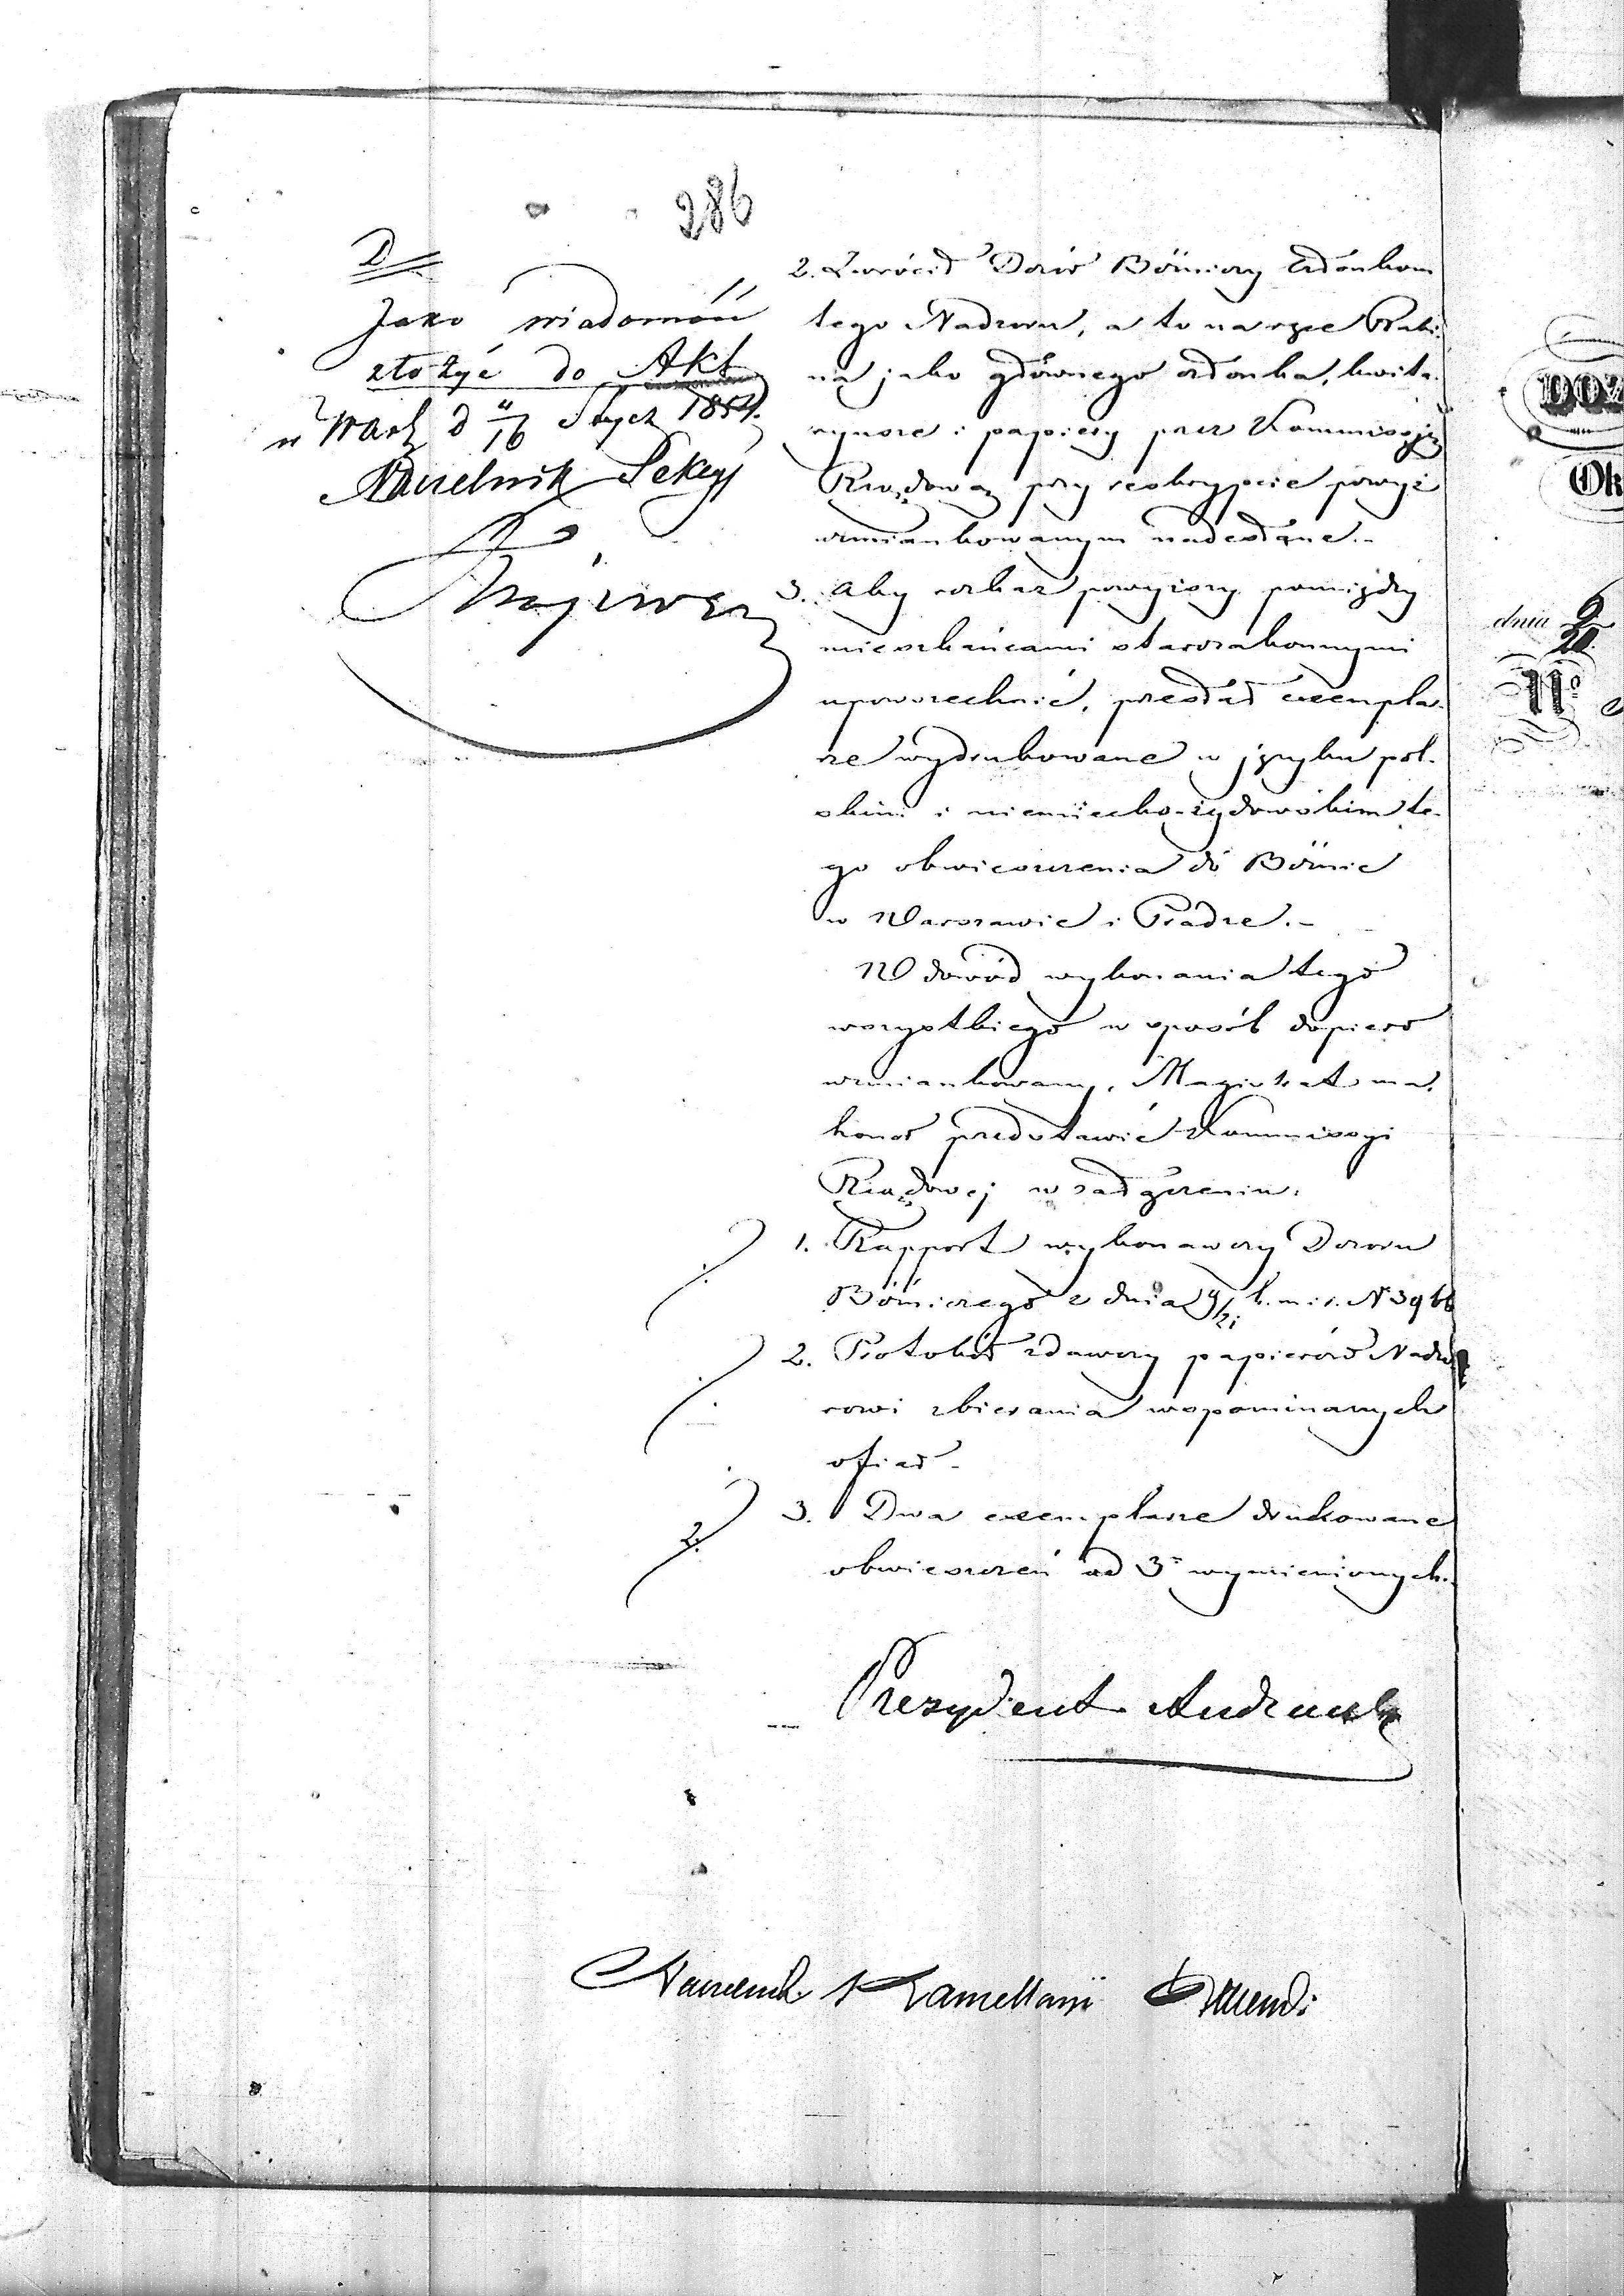 286
D
Jako wiadomość
złożyć do Akt
w Warsz d 4/16 Stycz 1854.
Naczelnik Sekcyi
2. Zwrócił Dozór Bóżniczy Członkom
tego Nadzoru, a to na ręce Rabi-
na jako głównego członka, kwita-
ryusze i papiery przez Kommissyją
Rządową przy reskrypcie powyż
wzmiankowanym nadesłane.-
3. Aby rozkaz powyższy pomiędzy
mieszkańcami starozakonnymi
upowszechnić, przesłał exempla-
rze wydrukowane w języku pol-
skim i niemiecko-żydowskim te-
go obwieszczenia do Bóżnic
w Warszawie i Pradze.-
W dowód wykonania tego
wszystkiego w sposób dopiero
wzmiankowany, Magistrat ma
honor przedstawić Kommissyi
Rządowej w załączeniu:
1. Rapport wykonawczy Dozoru
Bóżniczego z dnia 9/21 b. m. i r. N 3966
2. Protokół zdawczy papierów Nadzo-
rowi zbierania wspominanych
ofiar-
2.
3. Dwa exemplarze drukowane
obwieszczeń ad 3 wymienionych.
Prezydent Andrault
Naczelnik Kancellaryi
DOZ
Ok
dnia 9/21
N°